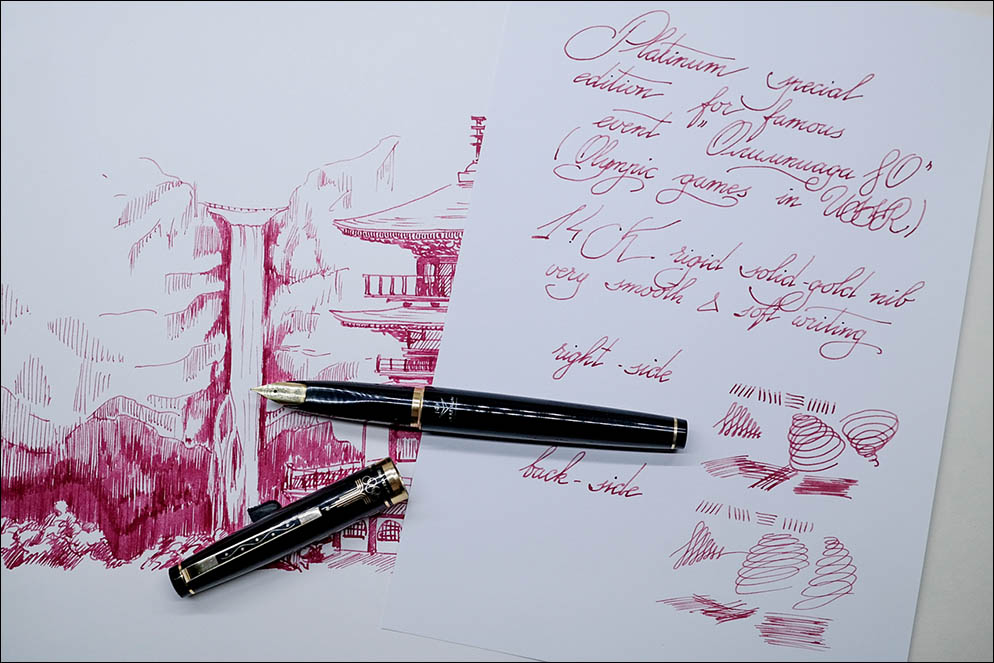 Platinum special
edition for famous
event "Олимпиада 80"
(Olympic games in USSR)
14 K. rigid solid-gold nib
very smooth & soft writing
right-side
back-side